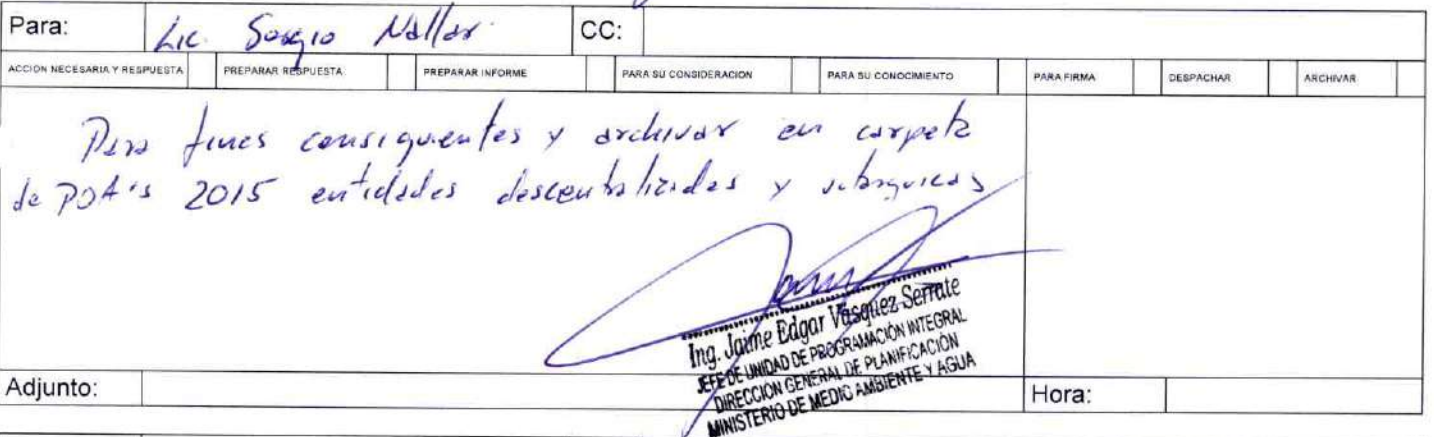 Para: Lic. Sergio Nallar CC:
ACCION NECESARIA Y RESPUESTA PREPARAR RESPUESTA PREPARAR INFORME PARA SU CONSIDERACION PARA SU CONOCIMIENTO PARA FIRMA DESPACHAR ARCHIVAR
Para fines consiguientes y archivar en carpeta
de POA's 2015 entidades descentralizadas y
Ing. Jaime Edgar Vasquez Serrate
JEFE DE UNIDAD DE PROGRAMACIÓN INTEGRAL
DIRECCIÓN GENERAL DE PLANIFICACIÓN
MINISTERIO DE MEDIO AMBIENTE Y AGUA
Adjunto: Hora: